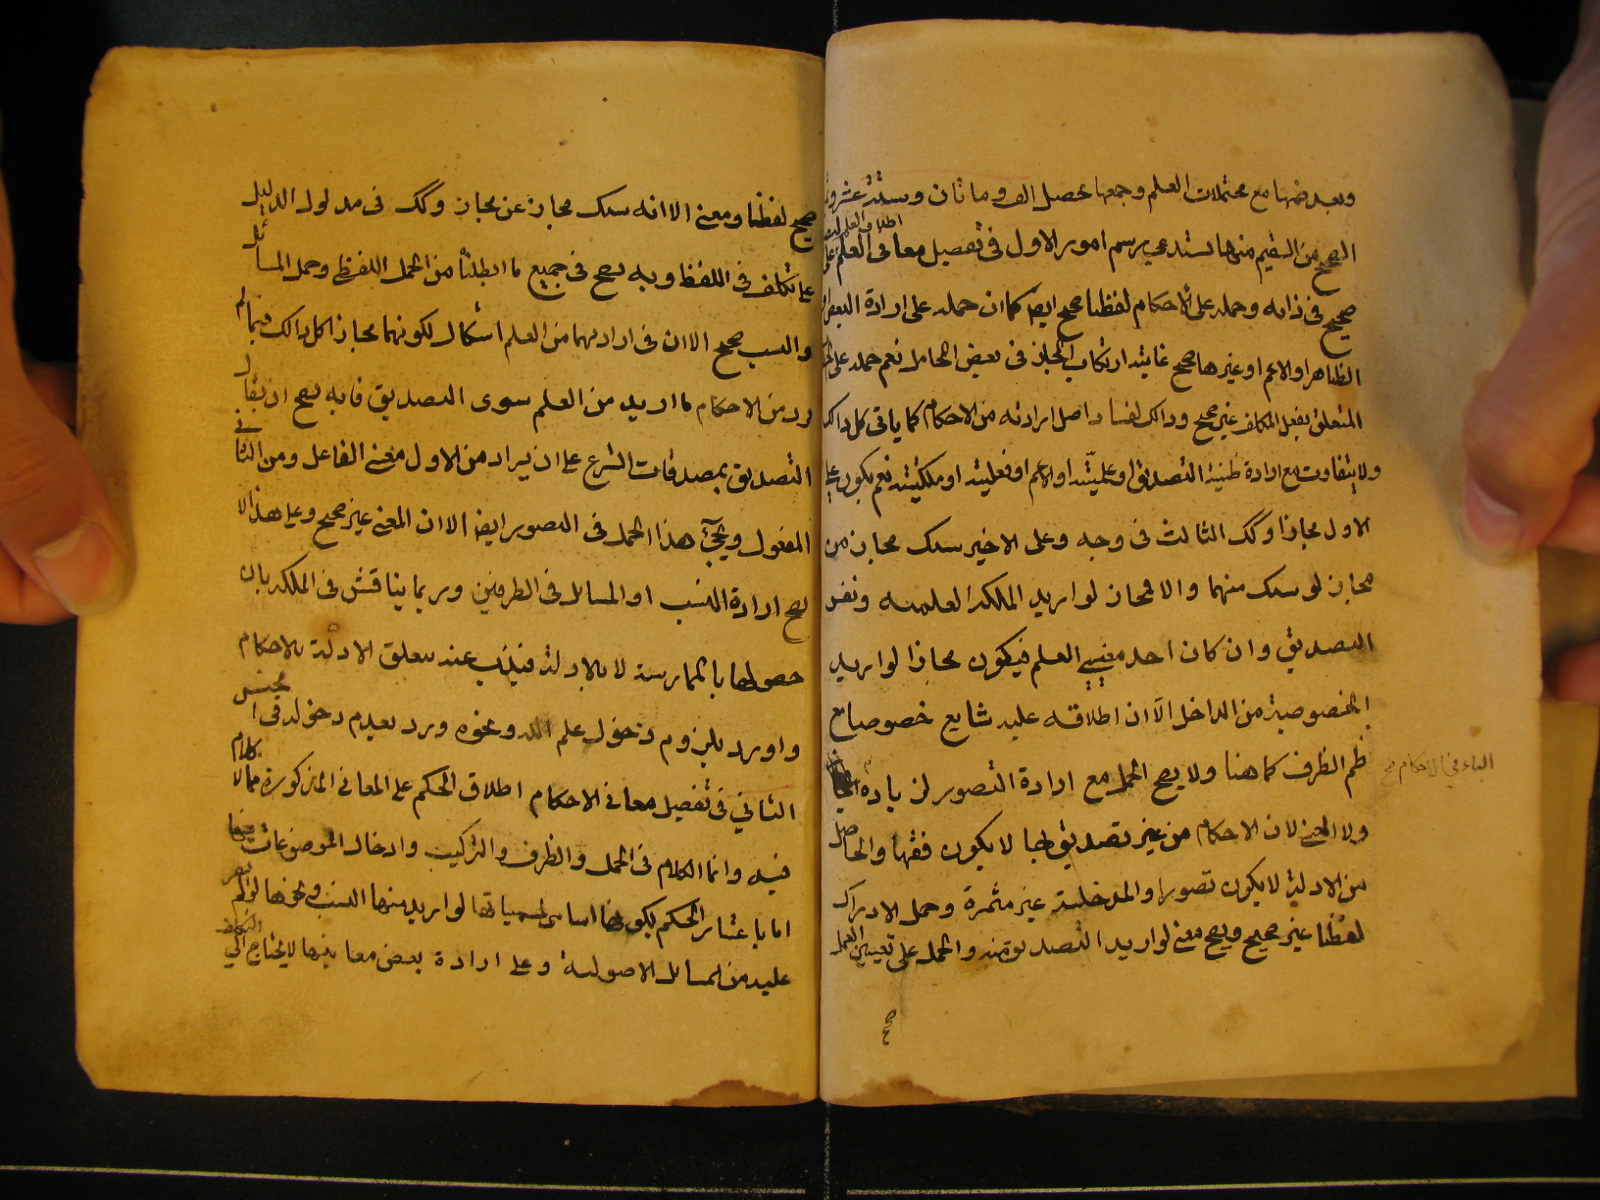 وبعد ضمها مع محتملات العلم وجمعها يحصل الف ومائان وستة عشر وتميز
الصحيح من السقيم منها يستدعي رسم امور الاول في تفصيل معاني العلم اطلاق العلم على
صحيح في ذاته وحمله على الاحكام لفظا صحيح ايضا كما ان حمله على ارادة البعض او
الظاهر او الاعم او غيرها صحيح غايته ارتكاب المجاز في بعض المحامل نعم حمله على
المتعلق بفعل المكلف غير صحيح وذلك لفساد اصل ارادته من الاحكام كما ياتي كل ذلك
ولا يتفاوت مع ارادة ظنية التصديق او علميته او الاعم او فعليته او ملكيته نعم يكون على
الاول مجازا وكك الثالث في وجه وعلى الاخير سبك مجاز من
مجاز لو سبك منهما والا فمجاز لو اريد الملكة العلمية ونفس
التصديق وان كان احد معنيي العلم فيكون مجازا لو اريد
الخصوصية من الداخل الا ان اطلاقه عليه شايع خصوصا مع
ضم الظرف كما هنا ولا يصح الحمل مع ارادة التصور لزيادة
ولا المعنى لان الاحكام من غير تصديق بها لا يكون فقها والحاصل
من الادلة لا يكون تصورا والمدخلية غير مثمرة وحمل الادراك
لفظا غير صحيح ويصح معنى لو اريد التصديق منه والحمل على تعيين العمل
صحيح
الباء في الاحكام صح
صحيح لفظا ومعنى الا انه سبك مجاز عن مجاز وكك في مدلول الدليل
على تكلف في اللفظ وبه يصح في جميع ما ابطلنا من الحمل اللفظي وحمل المسائل
والنسب صحيح الا ان في ارادتهما من العلم اشكال لكونهما مجازا كل ذلك فيما لم
يرد من الاحكام ما اريد من العلم سوى التصديق فانه يصح ان يقال
التصديق بمصدقات الشرع على ان يراد من الاول معنى الفاعل ومن الثاني
المفعول ويجئ هذا الحمل في التصور ايضا الا ان المعنى غير صحيح وعلى هذا لا
يصح ارادة النسب او المسائل في الطرفين وربما يناقش في الملكة بان
حصولها بالممارسة لا بالادلة فيذب عنه بتعلق الادلة بالاحكام
واورد بلزوم دخول علم الله ونحوه ورد بعدم دخوله في الجنس
الثاني في تفصيل معاني الاحكام اطلاق الحكم على المعاني المذكورة مما لا كلام
فيه وانما الكلام في الحمل والظرف والتركيب وادخال الموضوعات فيها
اما باعتبار الحكم بكونها اسامي لمسمياتها لو اريد منها النسب ونحوها
عليه من المسائل الاصولية وعلى ارادة بعض معانيها لا يحتاج الى التكلف